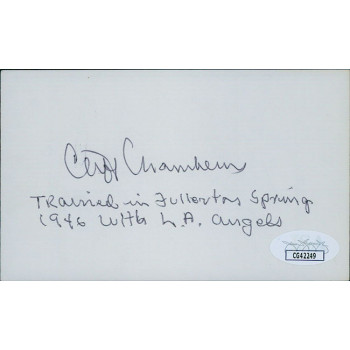 Cliff Chambers
Trained in Fullerton Spring
1946 with L.A. Angels
CG42249